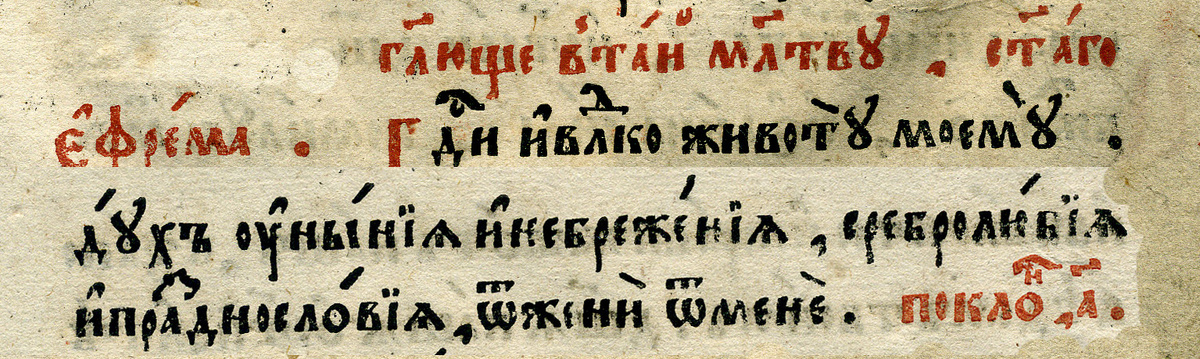 гл҃юще в̾та́и мл҃твꙋ , ст҃а́го
є҆фре́ма . Гдⷭ҇и и҆влⷣко живот̀ꙋ моем̀ꙋ .
дꙋ́хъ ᲂу҆ны́нїѧ и҆небреже́нїѧ , сребролю́бїѧ
и҆пра́зⷣнослѡ́вїѧ , ѿженѝ ѿменѐ . поклоⷩ҇ , а҃ .